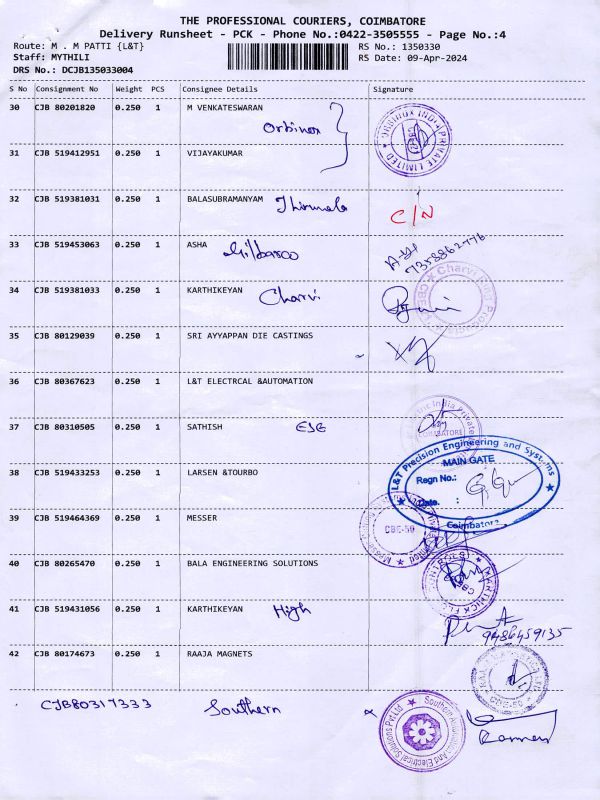 THE PROFESSIONAL COURIERS, COIMBATORE
Delivery Runsheet - PCK - Phone No.:0422-3505555 - Page No.:4
Route: M . M PATTI {L&T}
RS No.: 1350330
Staff: MYTHILI
RS Date: 09-Apr-2024
DRS No.: DCJB135033004
S No Consignment No Weight PCS Consignee Details Signature
30 CJB 80201820 0.250 1 M VENKATESWARAN
Orbinox
ORBINOX INDIA PRIVATE LIMITED
31 CJB 519412951 0.250 1 VIJAYAKUMAR
32 CJB 519381031 0.250 1 BALASUBRAMANYAM Thirumala C/N
33 CJB 519453063 0.250 1 ASHA Gilbarco
7358862776
34 CJB 519381033 0.250 1 KARTHIKEYAN Charvi
Charvi
35 CJB 80129039 0.250 1 SRI AYYAPPAN DIE CASTINGS
36 CJB 80367623 0.250 1 L&T ELECTRCAL &AUTOMATION
37 CJB 80310505 0.250 1 SATHISH
India Private
COIMBATORE
38 CJB 519433253 0.250 1 LARSEN &TOURBO
L&T Precision Engineering and Systems
MAIN GATE
Regn No.:
Date. :
Coimbatore
39 CJB 519464369 0.250 1 MESSER
CBE-59
40 CJB 80265470 0.250 1 BALA ENGINEERING SOLUTIONS
41 CJB 519431056 0.250 1 KARTHIKEYAN High
9486459135
42 CJB 80174673 0.250 1 RAAJA MAGNETS
CJB80317333 Southern
Southern Automation And Electrical Solutions Pvt Ltd